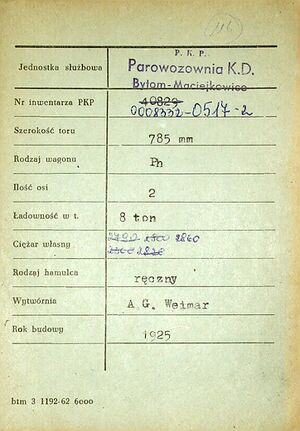 P. K. P.
Jednostka służbowa Parowozownia K.D.
Bytom-Maciejkowice
Nr inwentarza PKP 40829
0008332-0517-2
Szerokość toru 785 mm
Rodzaj wagonu Ph
Ilość osi 2
Ładowność w t. 8 ton
Ciężar własny 2860
Rodzaj hamulca ręczny
Wytwórnia A G. Weimar
Rok budowy 1925
btm 3 1192-62 6000